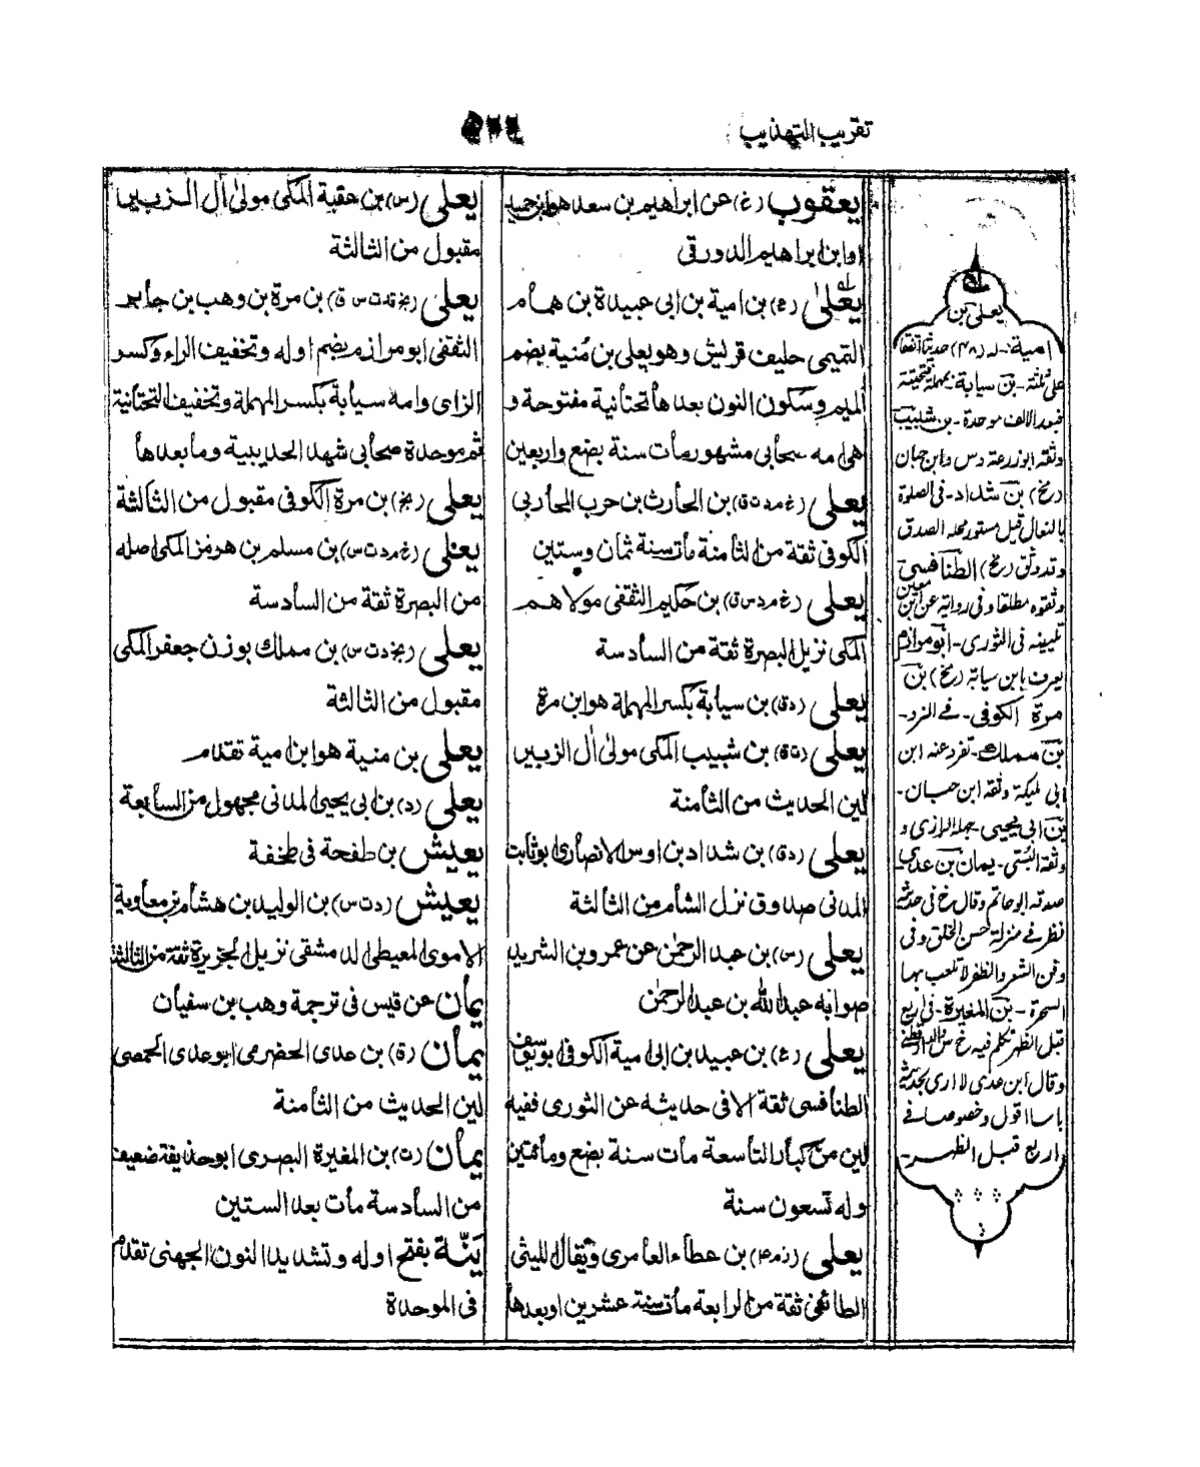 تقريب التهذيب
يعقوب (غ) عن ابراهيم بن سعد هو ابن حميد
او ابن ابراهيم الدورقي
يعلى (ع) بن امية بن ابى عبيدة بن همام
التميمي حليف قريش وهو يعلى بن مُنية بضم
الميم وسكون النون بعدها تحتانية مفتوحة و
هى امه صحابى مشهور مات سنة بضع واربعين
يعلى (خ م د ت ق) بن الحارث بن حرب المحاربى
الكوفى ثقة من الثامنة مات سنة ثمان وستين
يعلى (خ م د س ق) بن حكيم الثقفى مولاهم
المكى نزيل البصرة ثقة من السادسة
يعلى (د ق) بن سيابة بكسر المهملة هو ابن مرة
يعلى (ت ق) بن شبيب المكى مولىٰ اٰل الزبير
لين الحديث من الثامنة
يعلى (د ق) بن شداد بن اوس الانصارى ابو ثابت
المدنى صدوق نزل الشام من الثالثة
يعلى (س) بن عبد الرحمٰن عن عمرو بن الشريد
صوابه عبد الله بن عبد الرحمٰن
يعلى (ع) بن عبيد بن ابى امية الكوفى ابو يوسف
الطنافسى ثقة الا فى حديثه عن الثورى ففيه
لين من كبار التاسعة مات سنة بضع ومأتين
وله تسعون سنة
يعلى (ز م ٤) بن عطاء العامرى ويقال الليثى
الطائفى ثقة من الرابعة مات سنة عشرين او بعدها
يعلى (س) بن عقبة المكى مولىٰ اٰل الزبير
مقبول من الثالثة
يعلى (بخ قد ت س ق) بن مرة بن وهب بن جابر
الثقفى ابو مرازم بضم اوله وتخفيف الراء وكسر
الزاى وامه سيابة بكسر المهملة وتخفيف التحتانية
ثم موحدة صحابى شهد الحديبية وما بعدها
يعلى (بخ) بن مرة الكوفى مقبول من الثالثة
يعلى (خ م د ت س) بن مسلم بن هرمز المكى اصله
من البصرة ثقة من السادسة
يعلى (بخ د ت س) بن مملك بوزن جعفر المكى
مقبول من الثالثة
يعلى بن منية هو ابن امية تقدم
يعلى (د) بن ابى يحيى المدنى مجهول من السابعة
يعيش بن طفحة فى طخفة
يعيش (د ت س) بن الوليد بن هشام بن معاوية
الاموى المعيطى الدمشقى نزيل الجزيرة ثقة من الثالثة
يمان عن قيس فى ترجمة وهب بن سفيان
يمان (ق) بن عدى الحضرمى ابو عدى الحمصى
لين الحديث من الثامنة
يمان (ت) بن المغيرة البصرى ابو حذيفة ضعيف
من السادسة مات بعد الستين
يَنّة بفتح اوله وتشديد النون الجهنى تقدم
فى الموحدة
يعلى بن
امية- له (٤٨) حديثا اتفقا
على ثلثة - بن سيابة بمهملة فتحتية
فبعد الالف موحدة - بن شبيب
وثقه ابوزرعة دس وابن حبان
(رخ) بن شداد - فى الصلوة
بالنعال قيل مستور محله الصدق
وقد وثق (رخ) الطنافسى
وثقوه مطلقا وفى رواية عن ابن معين
تليينه فى الثورى - ابو مرازم
يعرف بابن سيابة (رخ) بن
مرة الكوفى - فے النرد -
بن مملك - تفرد عنه ابن
ابى مليكة وثقه ابن حبان -
بن ابى يحيى - جهله الرازى و
وثقه البستى - يمان بن عدى
صدقه ابو حاتم وقال خ فى حديثه
نظر فے منزلة حسن الخلق وفى
السحرة - بن المغيرة - فى اربع
قبل الظهر تكلم فيه خ س والدارقطنى
وقال ابن عدى لا ارى بحديثه
باسا اقول وخصوصا فے
اربع قبل الظهر -